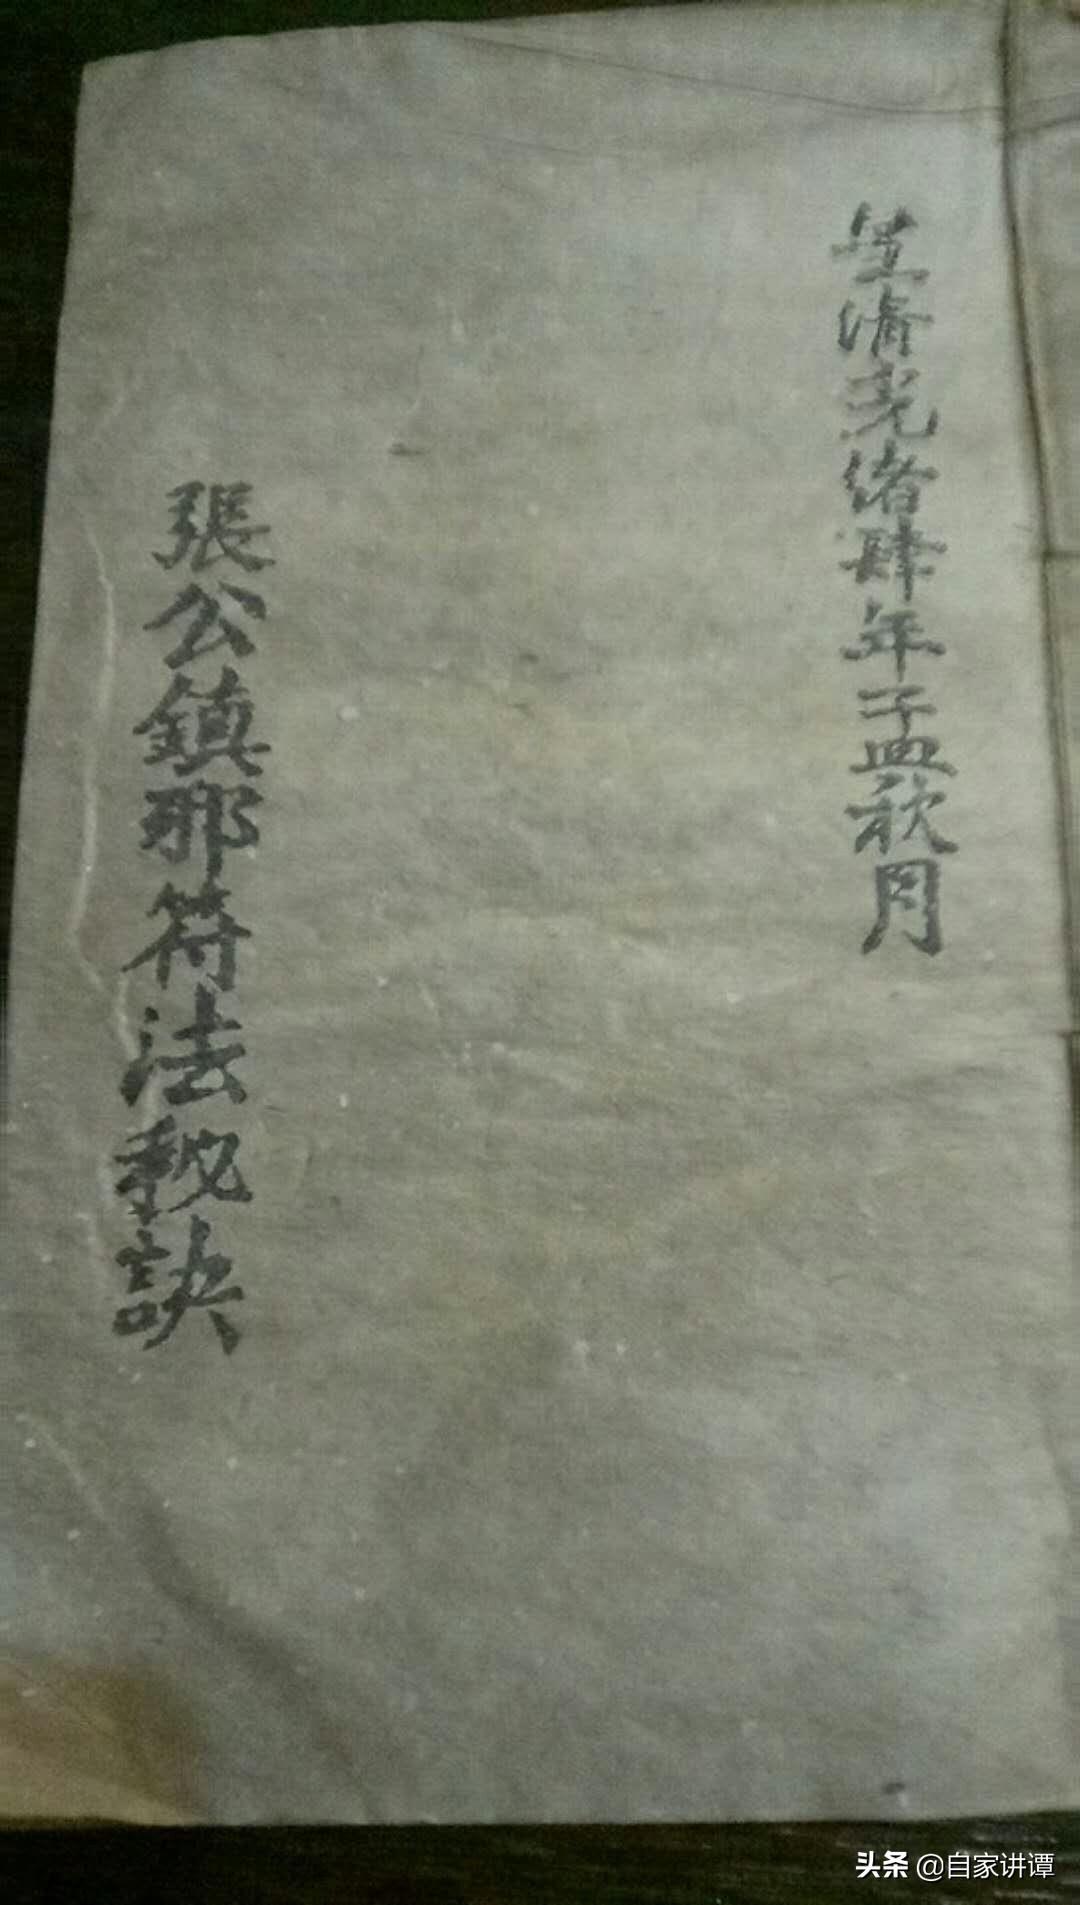 清光緒肆年孟秋月
張公鎮邪符法秘訣
头条 @自家讲谭